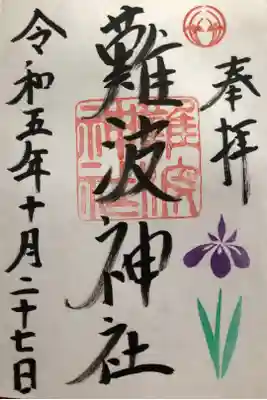 奉拝
難波神社
難波
神社
令和五年十月二十七日